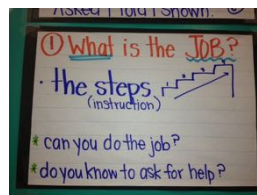 Asked I Told I Shown.
① What is the JOB?
· the steps
(instruction)
* can you do the job?
* do you know to ask for help?